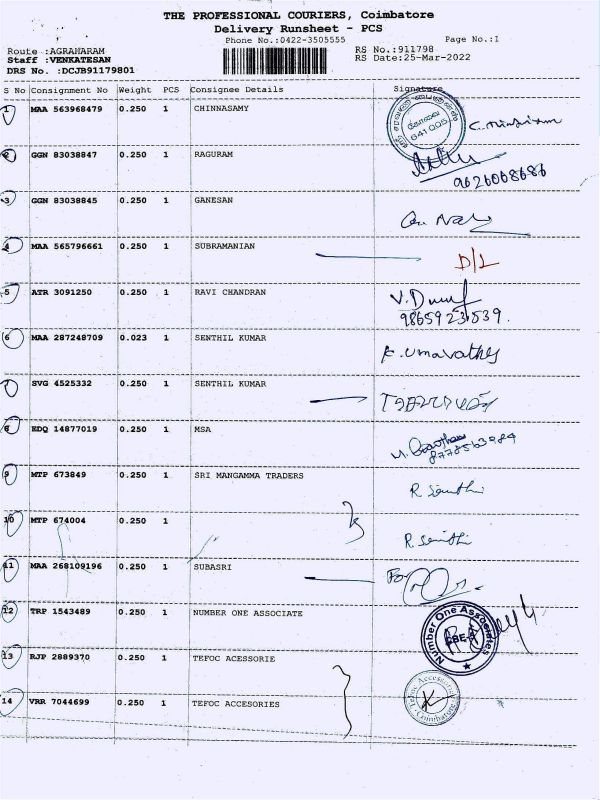 THE PROFESSIONAL COURIERS, Coimbatore
Delivery Runsheet - PCS
Phone No.:0422-3505555 Page No.:1
Route :AGRAHARAM RS No.:911798
Staff :VENKATESAN RS Date:25-Mar-2022
DRS No. :DCJB91179801
S No Consignment No Weight PCS Consignee Details Signature
1 MAA 563968479 0.250 1 CHINNASAMY 641 005
2 GGN 83038847 0.250 1 RAGURAM
9626068686
3 GGN 83038845 0.250 1 GANESAN
4 MAA 565796661 0.250 1 SUBRAMANIAN D/L
5 ATR 3091250 0.250 1 RAVI CHANDRAN
6 MAA 287248709 0.023 1 SENTHIL KUMAR K. Umavathy
7 SVG 4525332 0.250 1 SENTHIL KUMAR
8 EDQ 14877019 0.250 1 MSA
9 MTP 673849 0.250 1 SRI MANGAMMA TRADERS R Senthi
10 MTP 674004 0.250 1 R Senthi
11 MAA 268109196 0.250 1 SUBASRI For
12 TRP 1543489 0.250 1 NUMBER ONE ASSOCIATE Number One Associates
13 RJP 2889370 0.250 1 TEFOC ACESSORIE
14 VRR 7044699 0.250 1 TEFOC ACCESORIES Tefoc Accessories Coimbatore